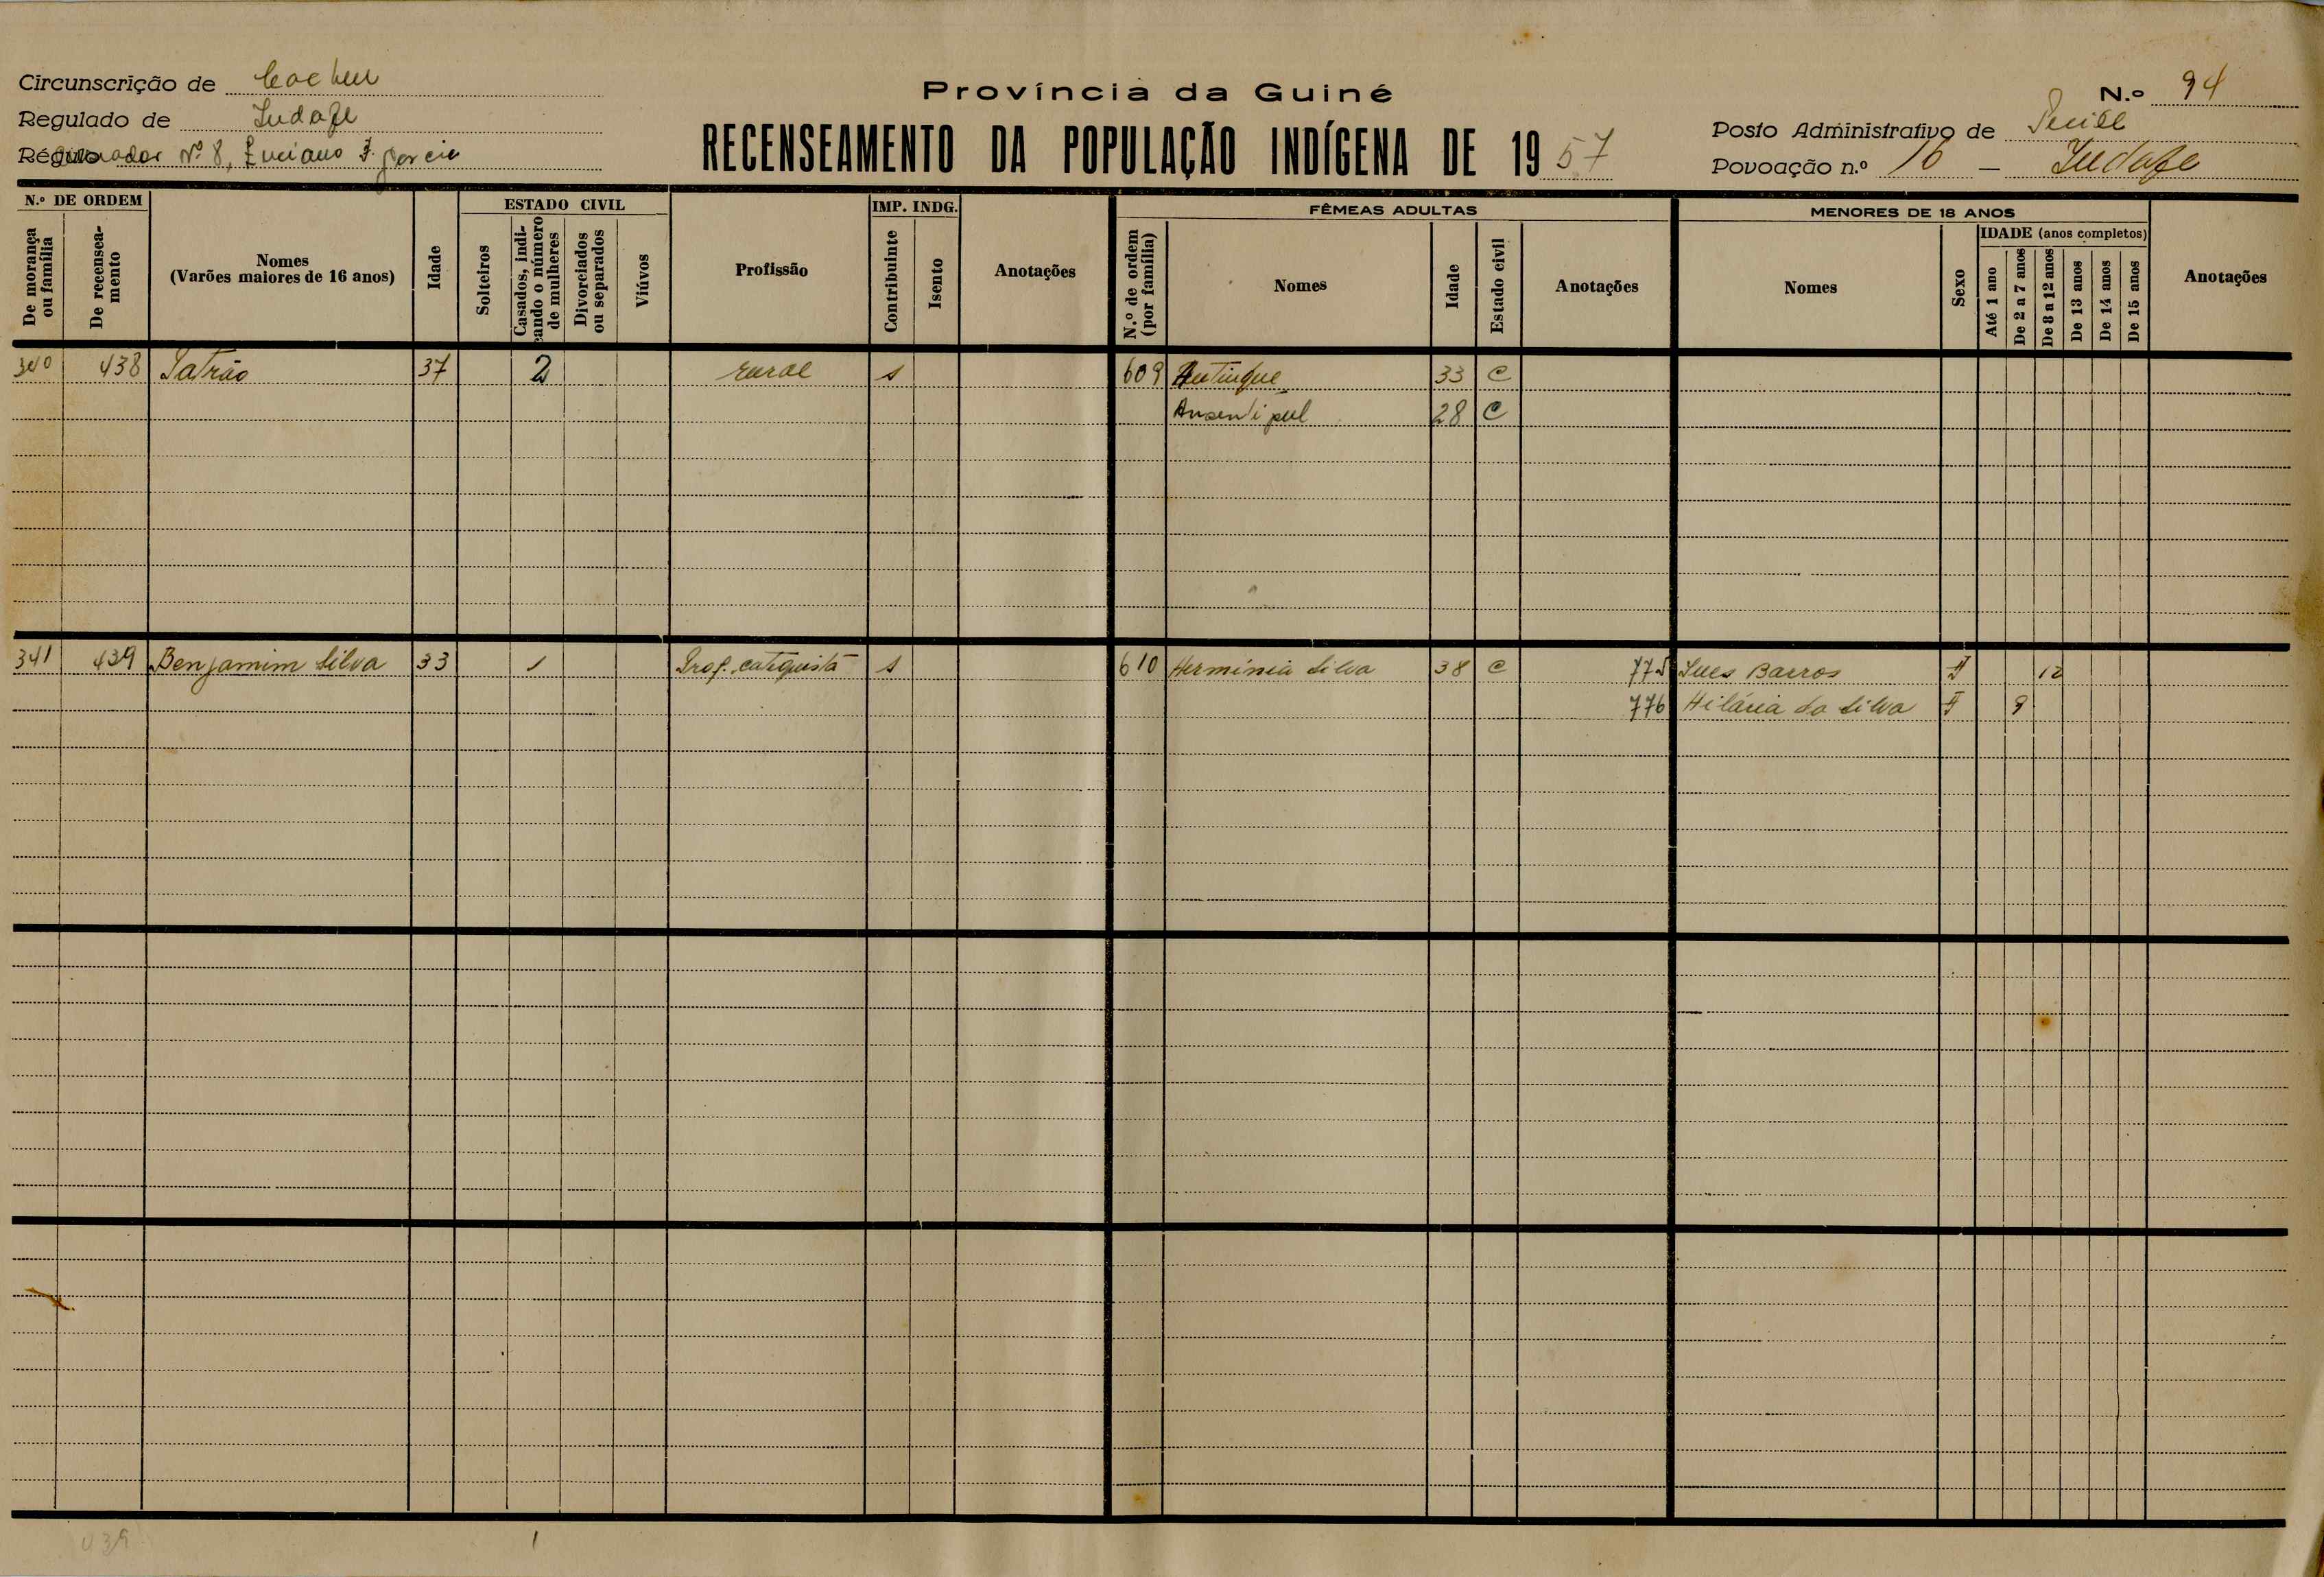 Circunscrição de Cacheu
Regulado de
Régulo Nº 8, Luciano
Província da Guiné
RECENSEAMENTO DA POPULAÇÃO INDÍGENA DE 1957
N.º 94
Posto Administrativo de
Povoação n.º 16 —
N.º DE ORDEM
De morança ou família
De recenseamento
Nomes
(Varões maiores de 16 anos)
Idade
ESTADO CIVIL
Solteiros
Casados, indicando o número de mulheres
Divorciados ou separados
Viúvos
Profissão
IMP. INDG.
Contribuinte
Isento
Anotações
FÊMEAS ADULTAS
N.º de ordem (por família)
Nomes
Idade
Estado civil
Anotações
MENORES DE 18 ANOS
Nomes
Sexo
IDADE (anos completos)
Até 1 ano
De 2 a 7 anos
De 8 a 12 anos
De 13 anos
De 14 anos
De 15 anos
Anotações
340 438 Patrão 37 2 rural s 609 33 C
28 C
341 439 Benjamim Silva 33 1 Prof. catequista s 610 Hermínia Silva 38 C 775 Ines Barros F 12
776 Hilária da Silva F
439 1